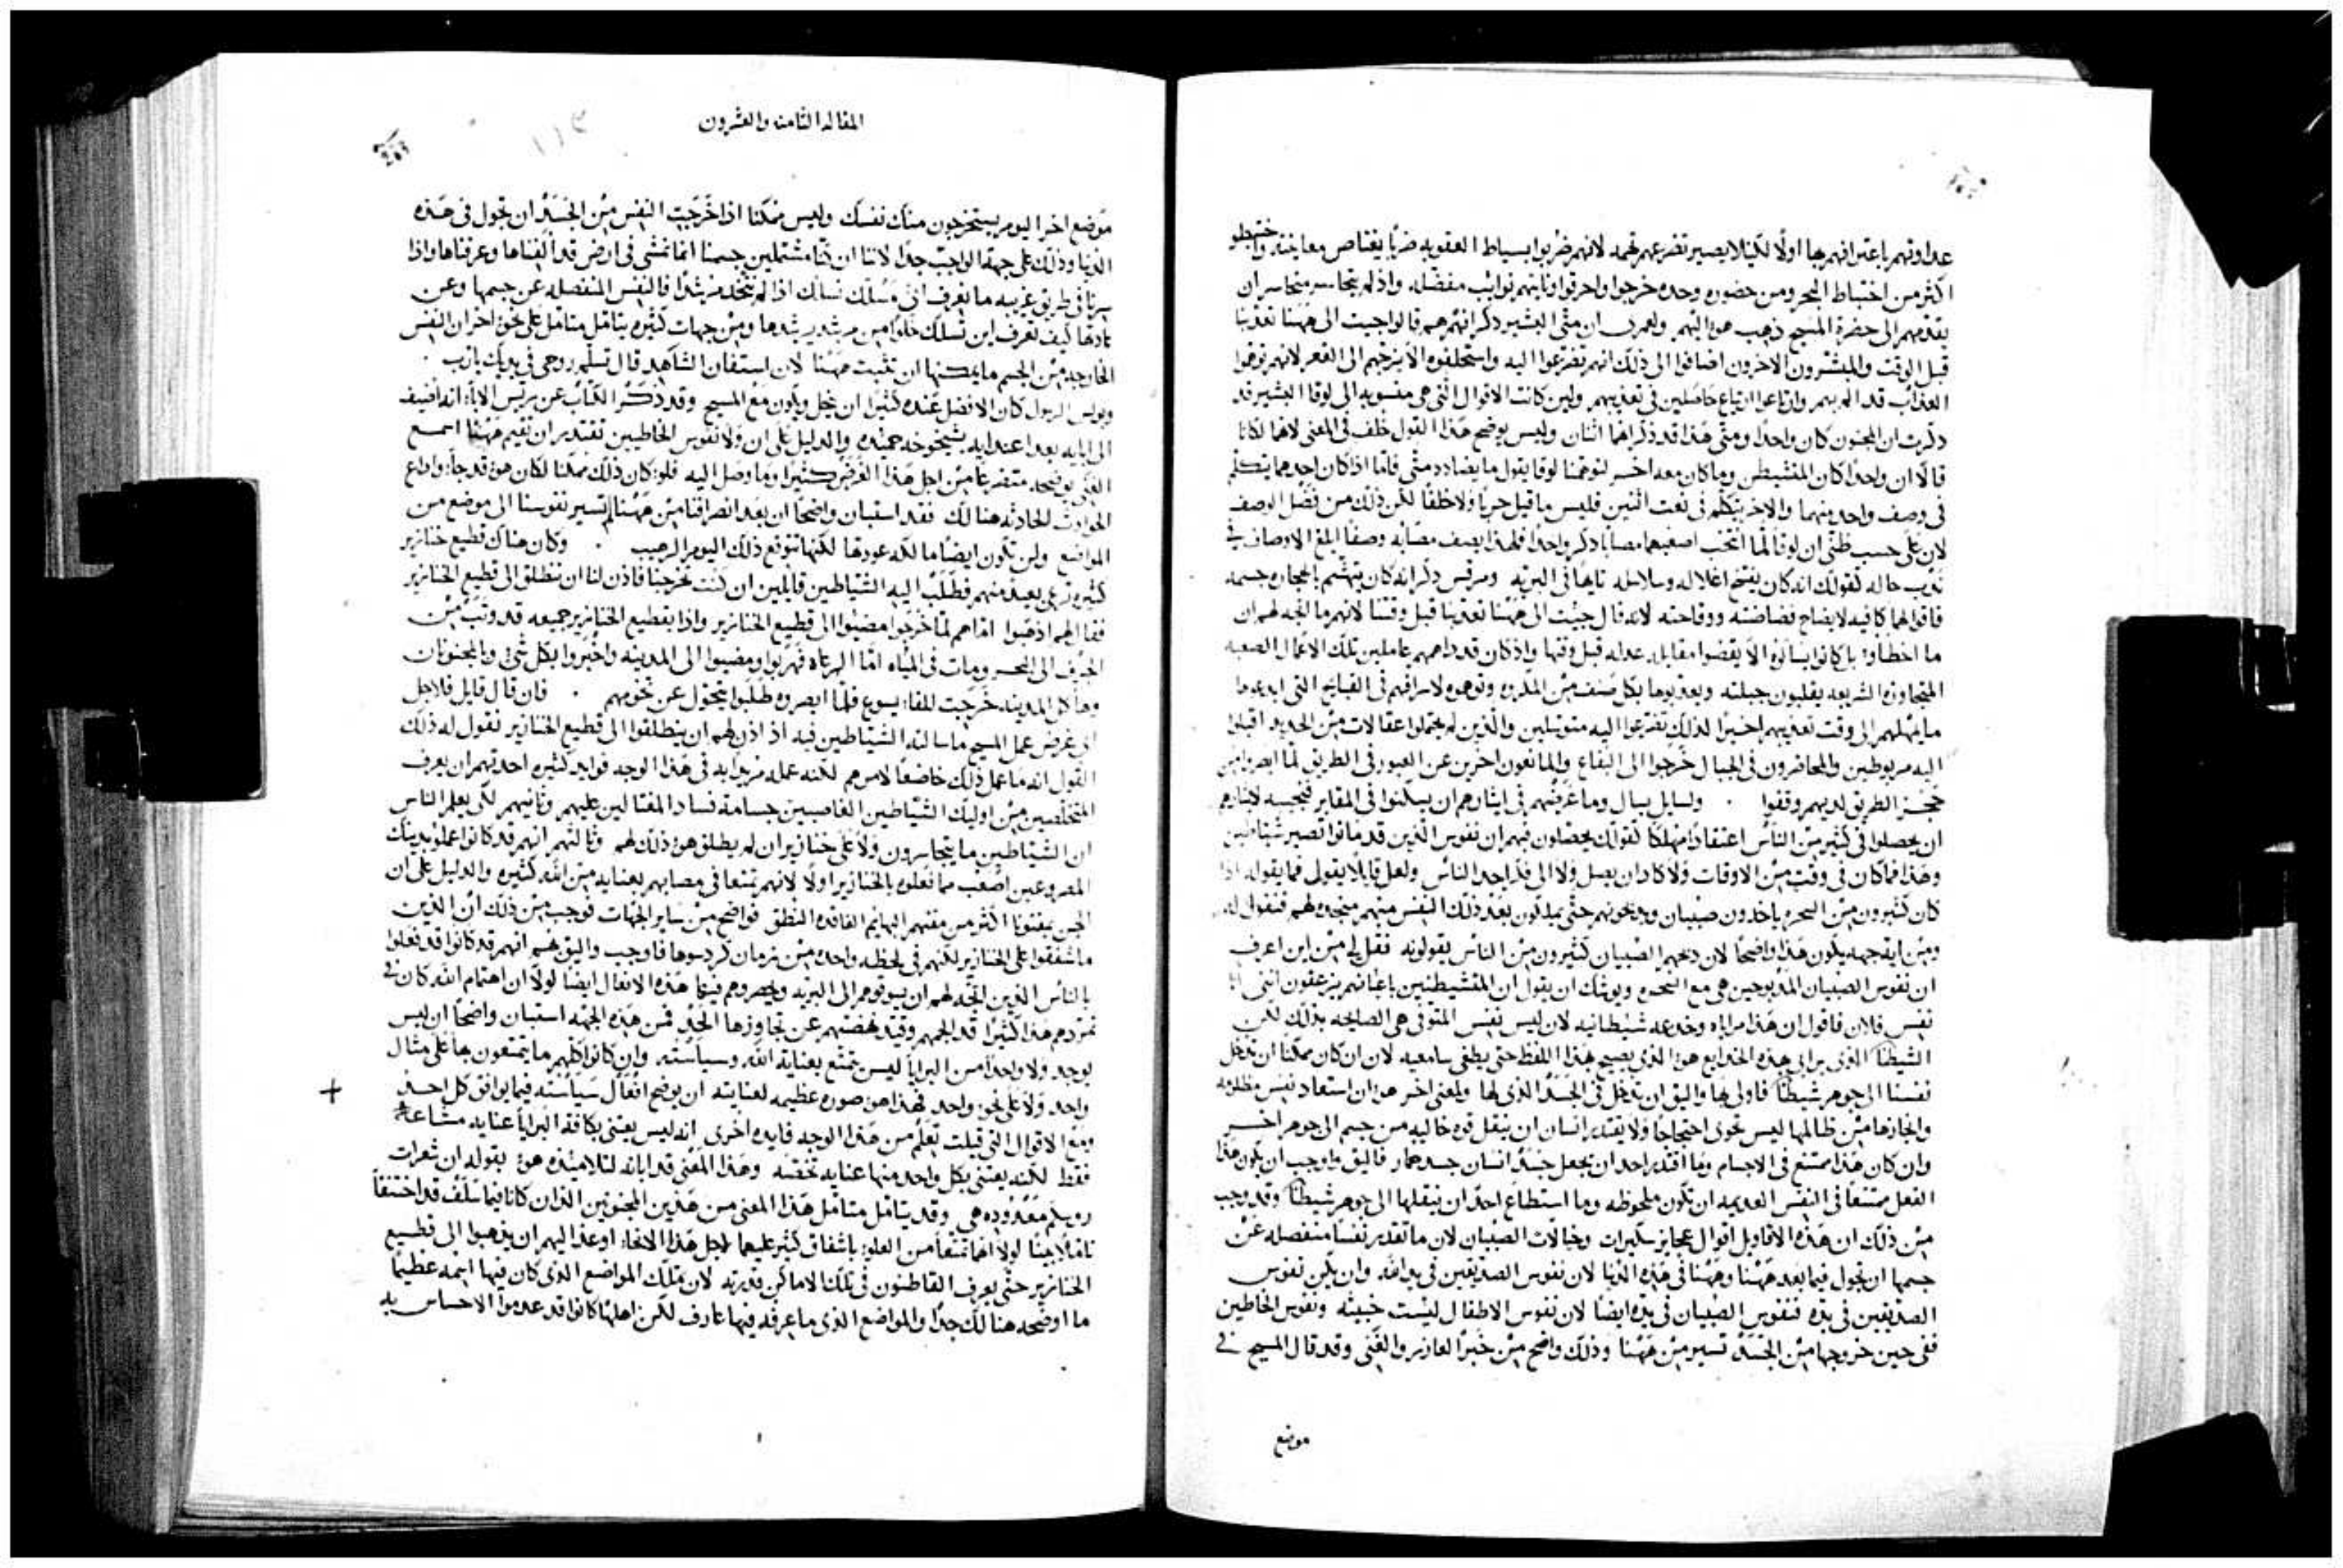 عداوتهم باعترافهم بها اولًا لكيلا يصير تضرعهم تهمه لانهم ضربوا بسياط العقوبه ضربًا يغتاص معاينته واختبطوا
اكثر من اختباط البحر ومن حضوره وحده خرجوا واحرقوا ونابتهم نوايب مفضله واذ لم يتجاسر متجاسر ان
يقدمهم الى حضرة المسيح ذهب هو اليهم ولعمري ان متى البشير ذكر انهم قالوا جيت الى ههنا تعذبنا
قبل الوقت والمبشرون الاخرون اضافوا الى ذلك انهم تضرعوا اليه واستحلفوه الا يزجهم الى القعر لانهم توهموا
العذاب قد الم بهم وارتاعوا ارتياع حاصلين في تعذيبهم ولين كانت الاقوال التي هي منسوبه الى لوقا البشير قد
ذكرت ان المجنون كان واحدًا ومتى هذا قد ذكر انهما اثنان وليس يوضح هذا القول خلف في المعنى لانهما لو كانا
قالا ان واحدًا كان المتشيطن وما كان معه اخر لتوهمنا لوقا يقول ما يضادد متى فاما اذا كان احدهما يتكلم
في وصف واحد منهما والاخر يتكلم في نعت اثنين فليس ما قيل حربًا ولا خلفًا لكن ذلك من فضل الوصف
لان على حسب ظني ان لوقا لما انتخب اصعبهما مصابًا ذكر واحدًا فلهذا يصف مصابه وصفًا ابلغ الاوصاف في
ندب حاله كقولك انه كان يفتح اغلاله وسلاسله تايهًا في البريه ومرقس ذكر انه كان يتهشم باحجاره جسمه
فاقوالهما كافيه لايضاح فضاضته ووقاحته لانه قال جيت الى ههنا تعذبنا قبل وقتنا لانهم ما اتجه لهم ان
ما اخطاوا به كانوا يسالوه الا يقضوا مقابله عدله قبل وقتها واذ كان قد داهمهم عاملين تلك الاعمال الصعبه
المتجاوزه الشريعه يقلبون جبلته ويعذبوها بكل صنف من المكروه وتوهموه لاسرافهم في القبايح التي ابدعوها
ما يمهلهم الى وقت تعذيبهم اخيرًا لذلك تضرعوا اليه متوسلين والذين لم يحتملوا عقالات من الحديد اقبلوا
اليه مربوطين والمحاضرون في الجبال خرجوا الى البقاع والمانعون اخرين عن العبور في الطريق لما ابصروا من
حجز الطريق لديهم وقفوا . ولسايل يسال وما غرضهم في ايثارهم ان يسكنوا في المقابر فنجيبه لايثارهم
ان يحصلوا في كثير من الناس اعتقادًا مهلكًا كقولك يحصلون فيهم ان نفوس الذين قد ماتوا تصير شياطين
وهذا فما كان في وقت من الاوقات ولا كاد ان يصل ولا الى فكر احد الناس ولعل قايلا يقول فما يقوله اذا
كان كثيرون من السحره ياخذون صبيان ويذبحونهم حتى يملكون بعد ذلك النفس منهم منجده لهم فنقول له
ومن ايه جهه يكون هذا واضحًا لان ذبحهم الصبيان كثيرون من الناس يقولونه فقل لي من اين اعرف
ان نفوس الصبيان المذبوحين هي مع السحره ويوشك ان يقول ان المتشيطنين باعيانهم يزعقون انني انا
نفس فلان فاقول ان هذا مراياه وخدعه شيطانيه لان ليس نفس المتوفي هي الصايحه بذلك لكن
الشيطان الذي يرايي هذه الخدايع هو الذي يصيح هذا اللفظ حتى يطغي سامعيه لان ان كان ممكنًا ان تدخل
نفسنا الى جوهر شيطان فاولى بها واليق ان تدخل في الجسد الذي لها ولمعنى اخر هو ان استعاد نفس مظلومه
وانجازها من ظالمها ليس تحوي احتجاجًا ولا يقتدر انسان ان ينقل قوه خاليه من جسم الى جوهر اخر
وان كان هذا ممتنع في الاجسام وما اقتدر احد ان يجعل جسد انسان جسد حمار فاليق واوجب ان يكون هذا
الفعل ممتنعًا في النفس العديمه ان تكون ملحوظه وما استطاع احد ان ينقلها الى جوهر شيطان وقد وجب
من ذلك ان هذه الاقاويل اقوال عجايز سكيرات وخيالات الصبيان لان ما تقدر نفسًا منفصله عن
جسمها ان تجول فيما بعد ههنا وههنا في هذه الدنيا لان نفوس الصديقين في يد الله وان يكن نفوس
الصديقين في يده فنفوس الصبيان في يده ايضًا لان نفوس الاطفال ليست خبيثه ونفوس الخاطين
ففي حين خروجها من الجسد تسير من ههنا وذلك واضح من خبر العازر والغني وقد قال المسيح في
موضع
المقاله الثامنه والعشرون
١١٣
موضع اخر اليوم يستخرجون منك نفسك وليس ممكنا اذا خرجت النفس من الجسد ان تجول في هذه
الدنيا وذلك على جهة الواجب جدًا لاننا ان كنا مشتملين جسمنا انما نمشي في ارض قد الفناها وعرفناها واذا
سرنا في طريق غريبه ما نعرف اي مسلك نسلك اذا لم نتخذ مرشدًا فالنفس المنفصله عن جسمها وعن
عادتها كيف تعرف اين تسلك خلوًا من مرشد يرشدها ومن جهات كثيره يتامل متامل على نحو اخر ان النفس
الخارجه من الجسم ما يمكنها ان تثبت ههنا لان استفان الشاهد قال تسلم روحي في يديك يارب .
وبولس الرسول كان الافضل عنده كثيرًا ان ينحل ويكون مع المسيح وقد ذكر الكتاب عن ريس الاباء انه اضيف
الى ابايه بعد اعتدابه بشيخوخه حميده والدليل على ان ولا نفوس الخاطيين تقتدر ان تقيم ههنا اسمع
الغني يوضحه متضرعًا من اجل هذا الغرض كثيرًا وما وصل اليه فلو كان ذلك ممكنًا لكان هو قد جاء واذاع
الحوادث الحادثه هنالك فقد استبان واضحًا ان بعد انصرافنا من ههنا تسير نفوسنا الى موضع من
المواضع ولن تكون ايضًا مالكه عودتها لكنها تتوقع ذلك اليوم الرهيب . وكان هناك قطيع خنازير
كثيره ترعى بعيد منهم فطلب اليه الشياطين قايلين ان كنت تخرجنا فاذن لنا ان ننطلق الى قطيع الخنازير
فقال لهم اذهبوا اما هم لما خرجوا مضوا الى قطيع الخنازير واذا بقطيع الخنازير جميعه قد وثب من
الجرف الى البحر ومات في المياه اما الرعاه فهربوا ومضوا الى المدينه واخبروا بكل شي وبالمجنونان
وهاكل المدينه خرجت للقاء يسوع فلما ابصروه طلبوا يتحول عن تخومهم . فان قال قايل فلاجل
اي غرض عمل المسيح ما سالته الشياطين فيه اذ اذن لهم ان ينطلقوا الى قطيع الخنازير نقول له ذلك
القول انه ما عمل ذلك خاضعًا لامرهم لكنه عمله مريدًا به في هذا الوجه فوايد كثيره احدتهم ان يعرف
المتخلصين من اوليك الشياطين الغاصبين جسامة فساد المغتالين عليهم وثانيهم لكي يعلم الناس
ان الشياطين ما يتجاسرون ولا على خنازير ان لم يطلق هو ذلك لهم وثالثهم انهم قد كانوا عملوا بذينك
المصروعين اصعب مما فعلوه بالخنازير اولًا لانهم تمتعا في مصابهم بعنايه من الله كثيره والدليل على ان
الجن يمقتونا اكثر من مقتهم البهايم الفاقده النطق فواضح من ساير الجهات فوجب من ذلك ان الذين
ما شفقوا على الخنازير لكنهم في لحظه واحده من زمان كردسوها فاوجب واليق بهم انهم قد كانوا قد فعلوا
بالناس الذين اتجه لهم ان يسوقوهم الى البريه ويجروهم فيها هذه الافعال ايضًا لولا ان اهتمام الله كان في
تمردهم هذا كثيرًا قد الجمهم وقيد نهضتهم عن تجاوزها الحد فمن هذه الجهه استبان واضحًا ان ليس
يوجد ولا واحدًا من البرايا ليس يتمتع بعناية الله وسياسته وان كانوا كلهم ما يتمتعون بها على مثال
واحد ولا على نحو واحد فهذا هو صوره عظيمه لعنايته ان يوضح افعال سياسته فيما يوافق كل احد
ومع الاقوال التي قيلت نعلم من هذا الوجه فايده اخرى انه ليس يعتني بكافة البرايا عنايه مشاعة
فقط لكنه يعتني بكل واحد منها عنايه تخصه وهذا المعنى قد ابانه لتلاميذه هو بقوله ان شعرات
روسكم معدوده هي وقد يتامل متامل هذا المعنى من هذين المجنونين اللذان كانا فيما سلف قد اختنقا
لولا انهما تمتعا من العلو باشفاق كثير عليهما لاجل هذا الانحاء اوعذ اليهم ان يذهبوا الى قطيع
الخنازير حتى يعرف القاطنون في تلك الاماكن قدرته لان بتلك المواضع الذي كان فيها اسمه عظيمًا
ما اوضحه هنالك جدًا والمواضع الذي ما عرفه فيها عارف لكن اهلها كانوا قد عدموا الاحساس به